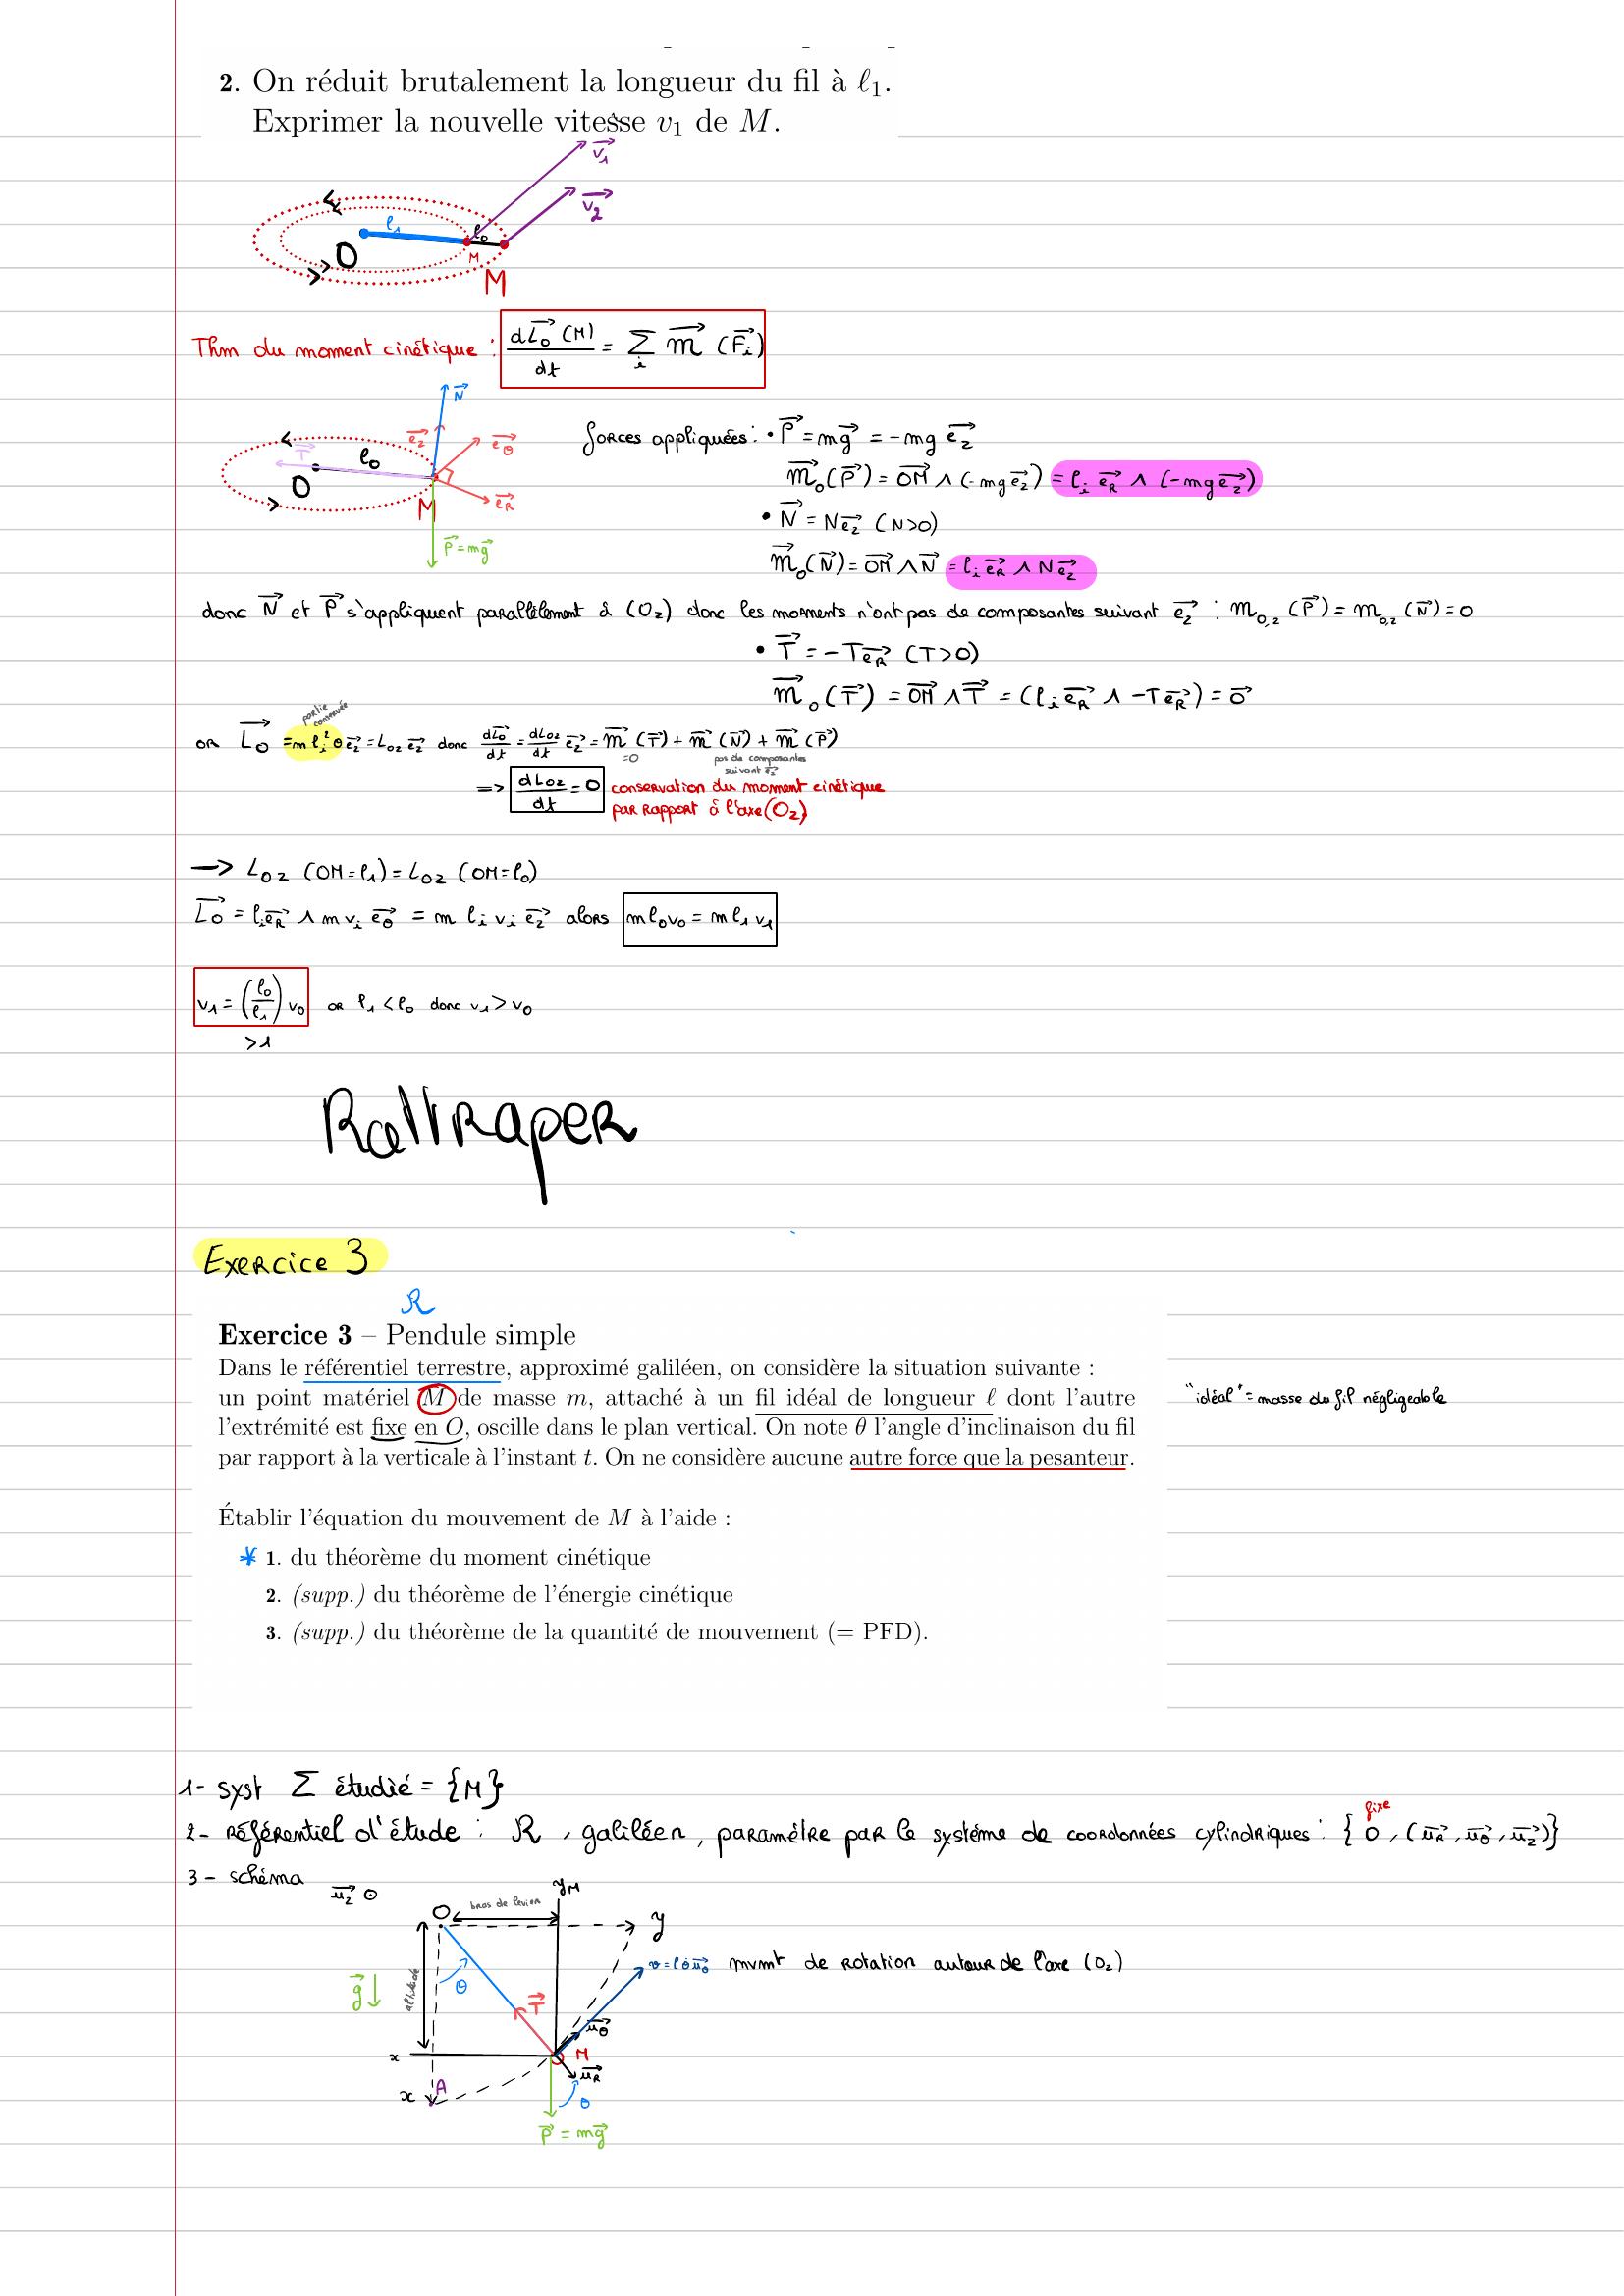 2. On réduit brutalement la longueur du fil à ℓ₁.
Exprimer la nouvelle vitesse v₁ de M.
v₁
v₂
ℓ₁
ℓ₀
O
M
M
Thm du moment cinétique : dL₀(M)/dt = Σᵢ m (Fᵢ)
N
e_z
e_θ
T
ℓ₀
O
M
e_R
P = mg
forces appliquées : • P = mg = -mg e_z
m₀(P) = OM ∧ (-mg e_z) = ℓᵢ e_R ∧ (-mg e_z)
• N = N e_z (N>0)
m₀(N) = OM ∧ N = ℓᵢ e_R ∧ N e_z
donc N et P s'appliquent parallèlement à (Oz) donc les moments n'ont pas de composantes suivant e_z : m₀,z (P) = m₀,z (N) = 0
• T = -T e_R (T>0)
m₀(T) = OM ∧ T = (ℓᵢ e_R ∧ -T e_R) = 0
partie conservée
or L₀ = m ℓᵢ² θ e_z = L₀z e_z donc dL₀/dt = dL₀z/dt e_z = m (T) + m (N) + m (P)
=0 pas de composantes suivant e_z
=> dL₀z/dt = 0 conservation du moment cinétique
par rapport à l'axe (Oz)
→ L₀z (OM=ℓ₁) = L₀z (OM=ℓ₀)
L₀ = ℓᵢ e_R ∧ m vᵢ e_θ = m ℓᵢ vᵢ e_z alors m ℓ₀ v₀ = m ℓ₁ v₁
v₁ = (ℓ₀/ℓ₁) v₀ or ℓ₁ < ℓ₀ donc v₁ > v₀
>1
Rattraper
Exercice 3
R
Exercice 3 – Pendule simple
Dans le référentiel terrestre, approximé galiléen, on considère la situation suivante :
un point matériel M de masse m, attaché à un fil idéal de longueur ℓ dont l'autre
"idéal" = masse du fil négligeable
l'extrémité est fixe en O, oscille dans le plan vertical. On note θ l'angle d'inclinaison du fil
par rapport à la verticale à l'instant t. On ne considère aucune autre force que la pesanteur.
Établir l'équation du mouvement de M à l'aide :
* 1. du théorème du moment cinétique
2. (supp.) du théorème de l'énergie cinétique
3. (supp.) du théorème de la quantité de mouvement (= PFD).
1- syst Σ étudié = {M}
fixe
2- référentiel d'étude : R, galiléen, paramètre par le système de coordonnées cylindriques : { O, (u_R, u_θ, u_z)}
3- schéma
u_z ⊙
y_M
O
bras de levier
y
v = ℓ θ̇ u_θ mvmt de rotation autour de l'axe (Oz)
g
altitude
θ
T
u_θ
x
M
u_R
x
A
θ
P = mg